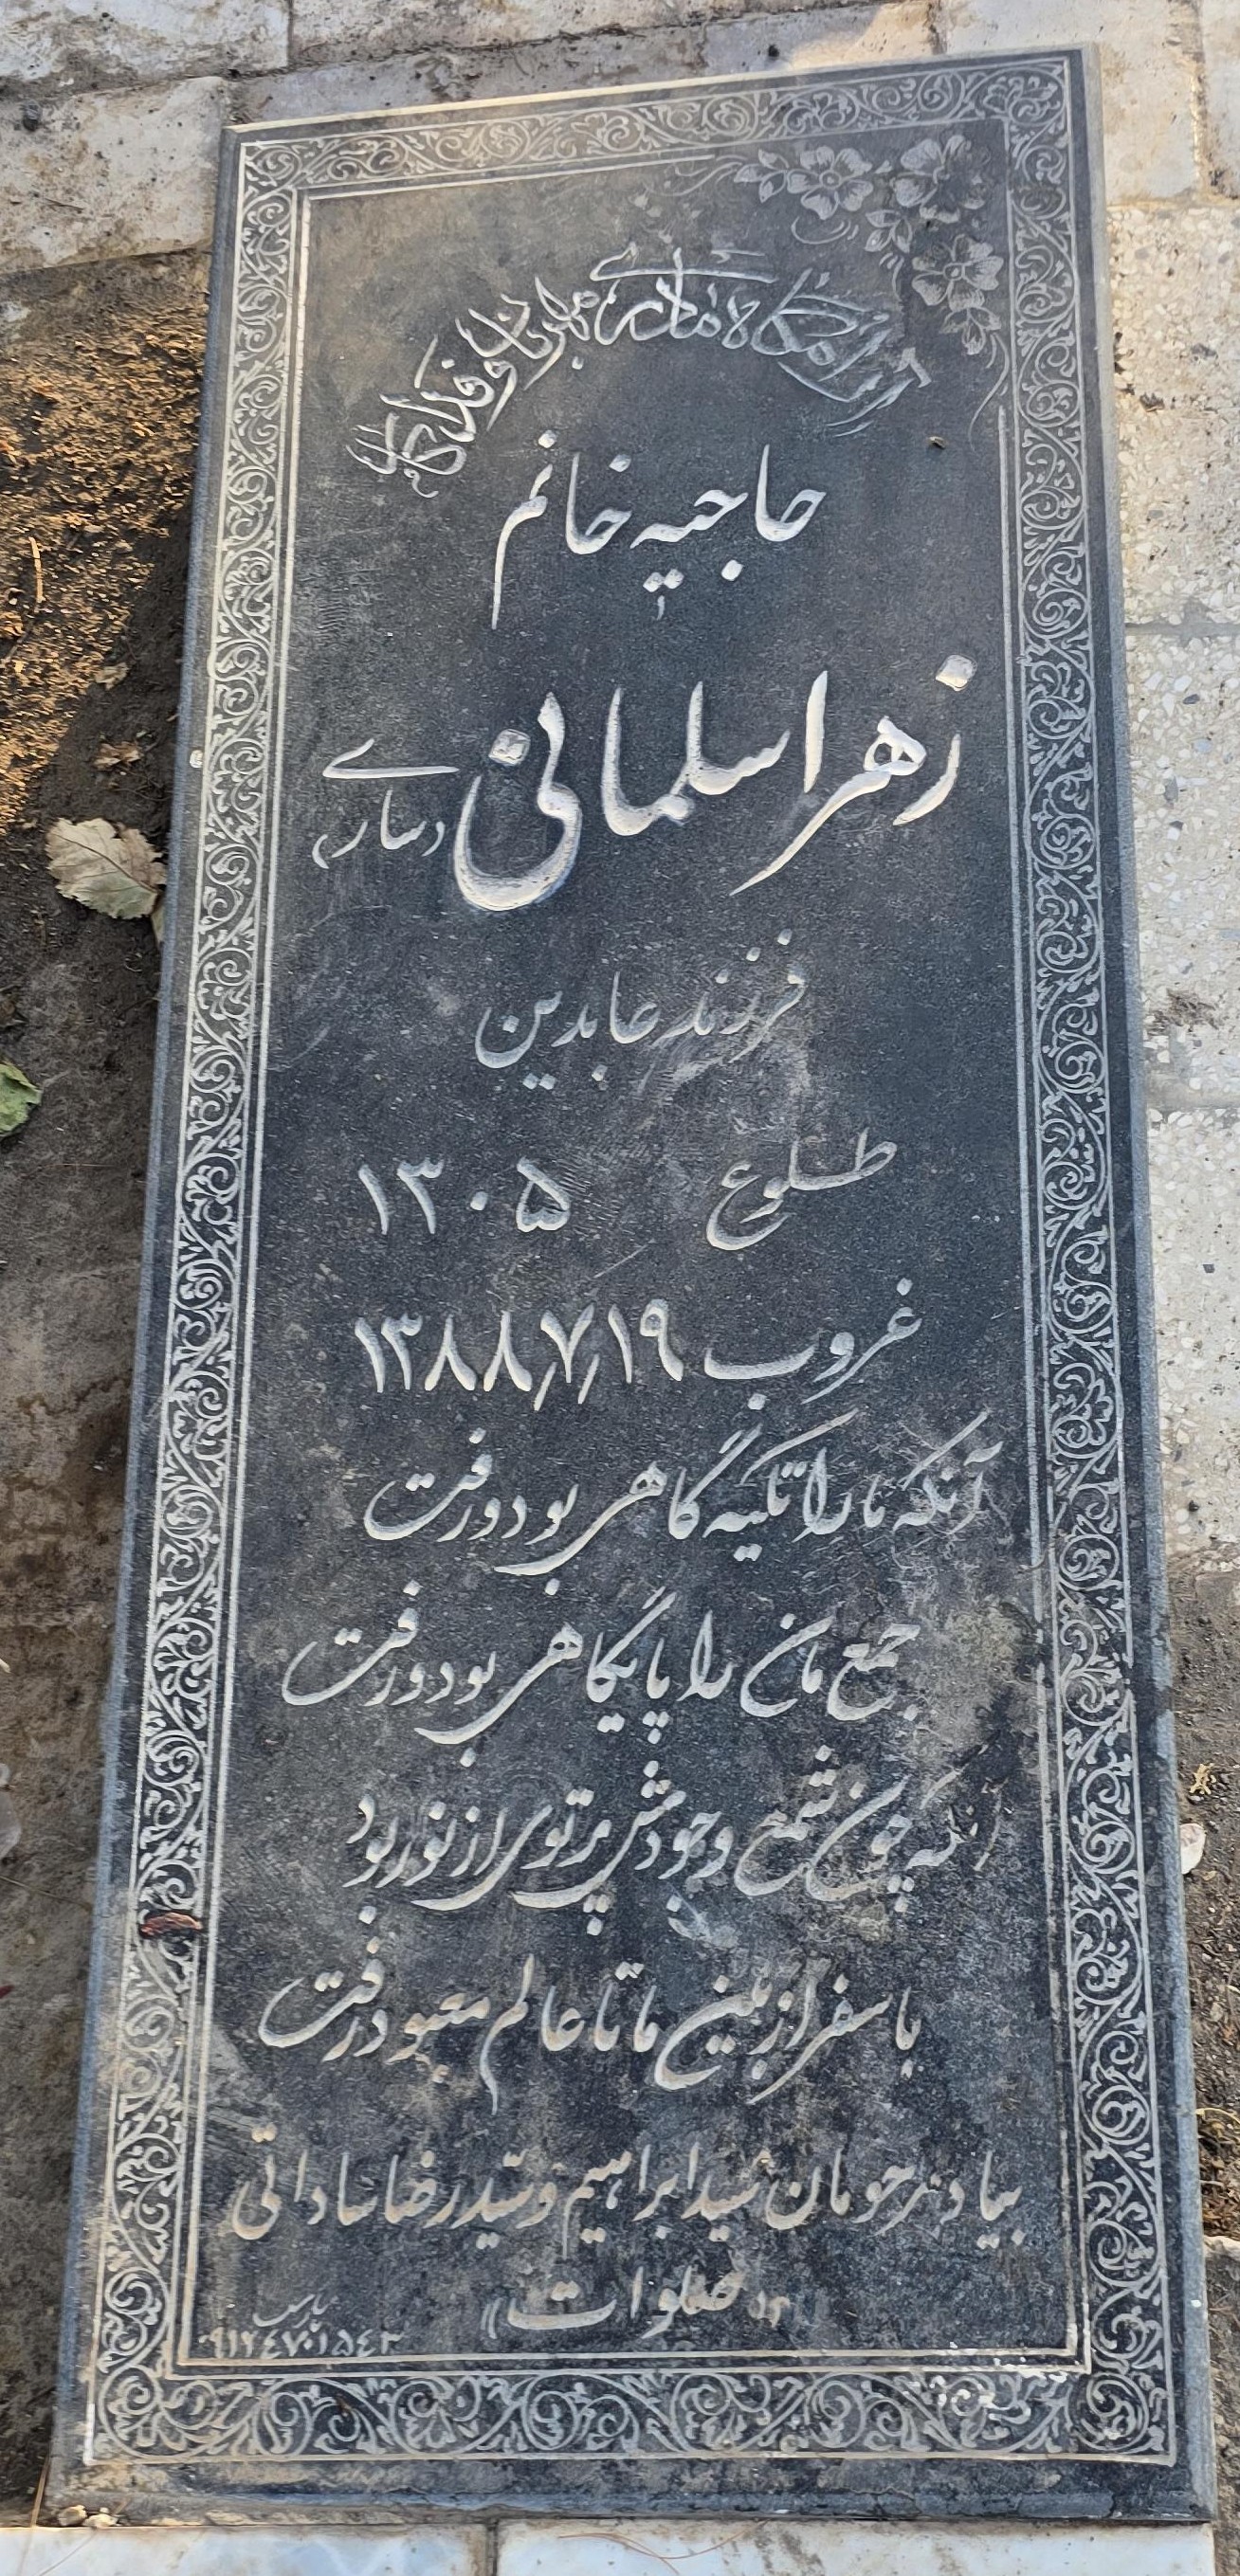 آرامگاه مادری مهربان و فداکار
حاجیه خانم
زهرا سلمانی (ساری)
فرزند عابدین
طلوع ۱۳۰۵
غروب ۱۳۸۸/۷/۱۹
آنکه ما را تکیه گاهی بود و رفت
جمع مان را پایگاهی بود و رفت
آنکه چون شمع وجودش پرتوی از نور بود
با سفر از بین ما تا عالم معبود رفت
بیاد مرحومان سیدابراهیم و سیدرضا ساداتی
«صلوات»
پارس
۰۹۱۲۴۷۰۱۵۴۳